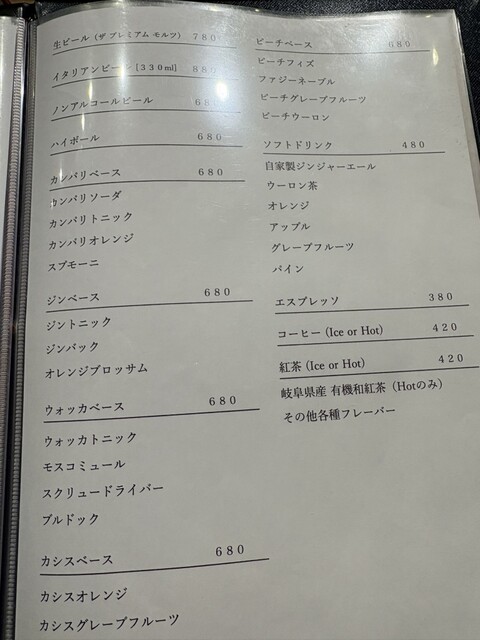 生ビール（ザ プレミアム モルツ） 780
イタリアンビール [330ml] 880
ノンアルコールビール 680
ハイボール 680
カンパリベース 680
カンパリソーダ
カンパリトニック
カンパリオレンジ
スプモーニ
ジンベース 680
ジントニック
ジンバック
オレンジブロッサム
ウォッカベース 680
ウォッカトニック
モスコミュール
スクリュードライバー
ブルドック
カシスベース 680
カシスオレンジ
カシスグレープフルーツ
ピーチベース 680
ピーチフィズ
ファジーネーブル
ピーチグレープフルーツ
ピーチウーロン
ソフトドリンク 480
自家製ジンジャーエール
ウーロン茶
オレンジ
アップル
グレープフルーツ
パイン
エスプレッソ 380
コーヒー (Ice or Hot) 420
紅茶 (Ice or Hot) 420
岐阜県産 有機和紅茶（Hotのみ）
その他各種フレーバー